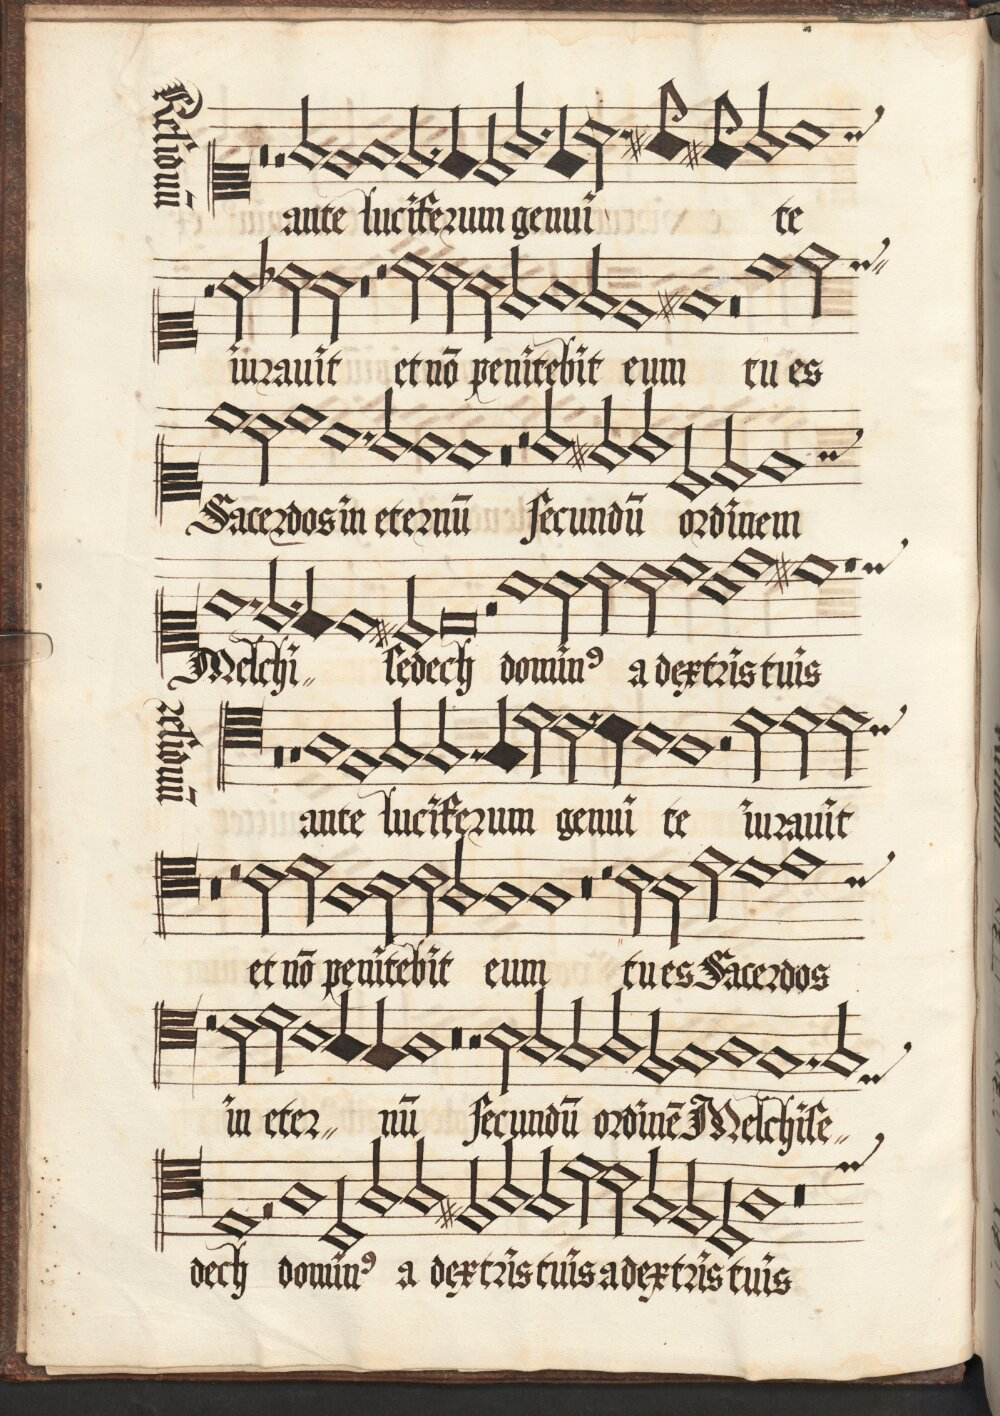 Residuū
ante luciferum genui te
iurauit et nō penitebit eum tu es
Sacerdos in eternū secundū ordinem
Melchi„ sedech dominꝰ a dextris tuis
residuū
ante luciferum genui te iurauit
et nō penitebit eum tu es Sacerdos
in eter„ nū secundū ordinē Melchise„
dech dominꝰ a dextris tuis a dextris tuis